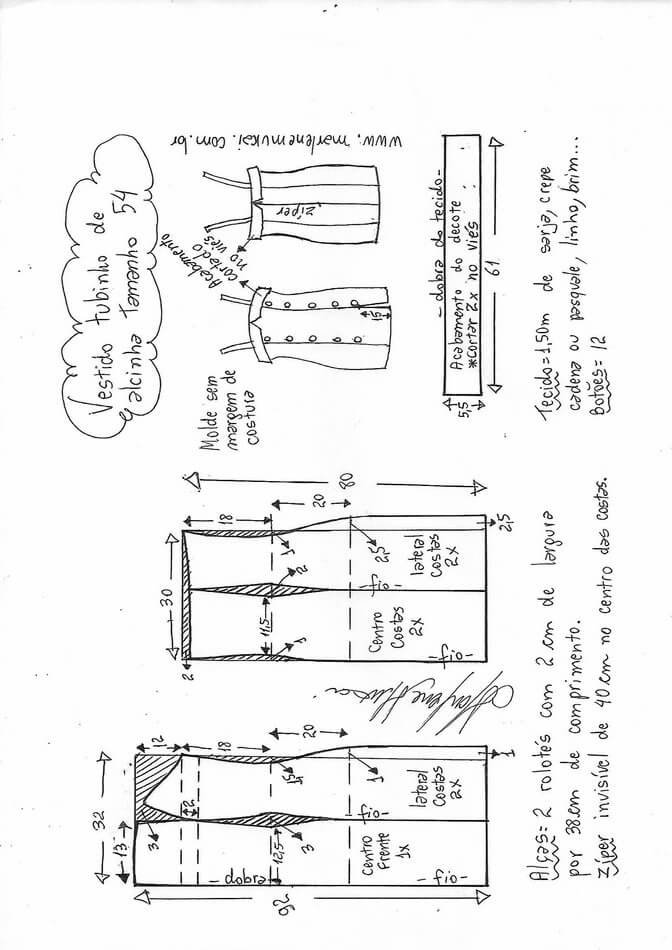 Vestido tubinho de
alcinha Tamanho 54
www.marlenemukai.com.br
Molde sem
margem de
costura
Acabamento
cortado
no viés
zíper
15
-dobra do tecido-
Acabamento do decote
*Cortar 2x no viés
61
5,5
Tecido=1,50m de sarja, crepe
cadena ou pasquale, linho, brim...
botões= 12
80
18
20
30
2
1
2
1
11,5
2,5
2,5
lateral
Costas
2x
-fio-
Centro
Costas
2x
-fio-
12
18
20
32
13
3
2
1,5
1
1
12,5
3
lateral
Costas
2x
-fio-
Centro
Frente
1x
-fio-
dobra
92
Alças= 2 rolotês com 2 cm de largura
por 38cm de comprimento.
Zíper invisível de 40cm no centro das costas.